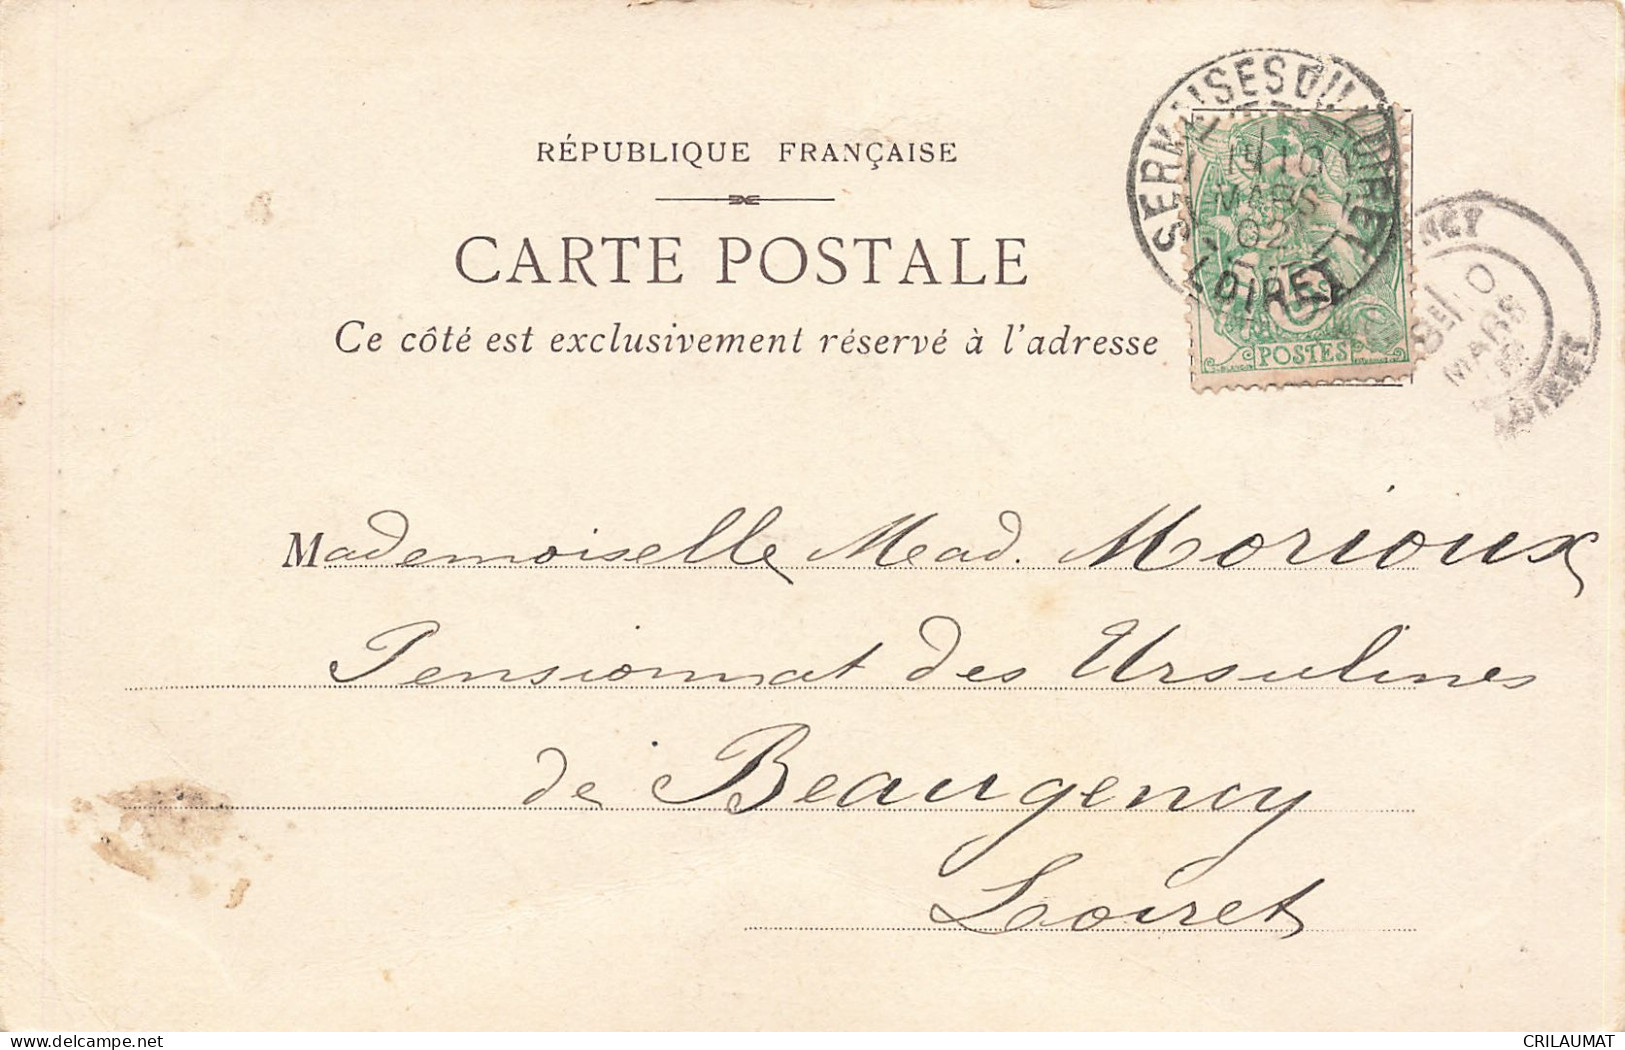 RÉPUBLIQUE FRANÇAISE
CARTE POSTALE
Ce côté est exclusivement réservé à l'adresse
SERMAISES DU LOIRET
10
MARS
02
LOIRET
5
POSTES
MARS
LOIRET
Mademoiselle Mad. Morioux
Pensionnat des Ursulines
de Beaugency
Loiret
delcampe.net
CRILAUMAT